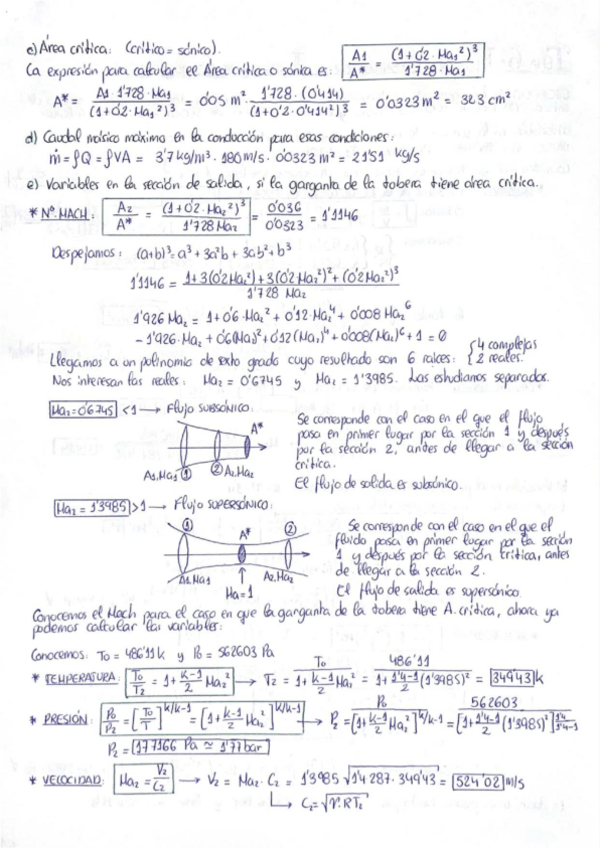 c) Área crítica: (crítico = sónico).
La expresión para calcular el Área crítica o sónica es: A1/A* = (1+0'2·Ma1²)³/1'728·Ma1
A* = A1·1'728·Ma1/(1+0'2·Ma1²)³ = 0'05 m² · 1'728·(0'414)/(1+0'2·0'414²)³ = 0'0323 m² = 323 cm²
d) Caudal másico máximo en la conducción para esas condiciones:
ṁ = ρQ = ρVA = 3'7 kg/m³ · 180 m/s · 0'0323 m² = 21'51 kg/s
e) Variables en la sección de salida, si la garganta de la tobera tiene área crítica.
* Nº. MACH: A2/A* = (1+0'2·Ma2²)³/1'728 Ma2 = 0'036/0'0323 = 1'1146
Despejamos: (a+b)³ = a³ + 3a²b + 3ab² + b³
1'1146 = 1+3(0'2Ma2²)+3(0'2Ma2²)²+(0'2Ma2²)³/1'728 Ma2
1'926 Ma2 = 1+0'6·Ma2²+0'12·Ma2⁴+0'008 Ma2⁶
-1'926·Ma2+0'6(Ma2)²+0'12(Ma2)⁴+0'008(Ma2)⁶+1 = 0
Llegamos a un polinomio de sexto grado cuyo resultado son 6 raíces: {4 complejas
2 reales.
Nos interesan las reales: Ma2 = 0'6745 y Ma2 = 1'3985. Las estudiamos separados.
Ma2=0'6745 <1 → Flujo SUBSÓNICO:
Se corresponde con el caso en el que el flujo
pasa en primer lugar por la sección 1 y después
por la sección 2, antes de llegar a la sección
crítica.
El flujo de salida es subsónico.
A*
A1,Ma1 ① ② A2,Ma2
Ma2 = 1'3985 >1 → Flujo SUPERSÓNICO:
Se corresponde con el caso en el que el
fluido pasa en primer lugar por la sección
1 y después por la sección crítica, antes
de llegar a la sección 2.
El flujo de salida es supersónico.
① A* ②
A1,Ma1 A2,Ma2
Ma=1
Conocemos el Mach para el caso en que la garganta de la tobera tiene A. crítica, ahora ya
podemos calcular las variables:
Conocemos: To = 486'11k y Po = 562603 Pa
* TEMPERATURA: To/T2 = 1+ k-1/2 Ma2² → T2 = To/1+ k-1/2 Ma2² = 486'11/1+ 1'4-1/2 (1'3985)² = 349'43 k
* PRESIÓN: Po/P2 = [To/T]^k/k-1 = [1+ k-1/2 Ma2²]^k/k-1 → P2 = Po/[1+ k-1/2 Ma2²]^k/k-1 = 562603/[1+ 1'4-1/2 (1'3985)²]^1'4/1'4-1
P2 = 177166 Pa ≃ 1'77 bar
* VELOCIDAD: Ma2 = V2/C2 → V2 = Ma2·C2 = 1'3985 √1'4·287·349'43 = 524'02 m/s
C2=√γ·RT2